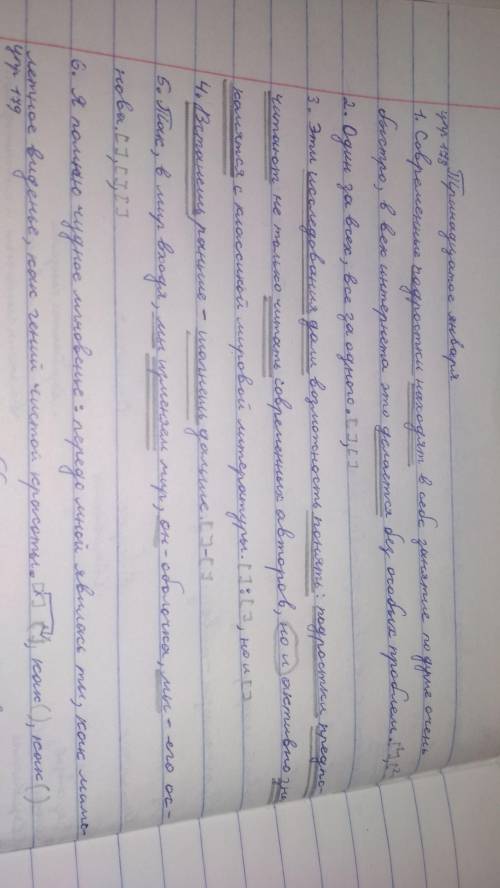 Тринадцатое января
упр. 178
1. Современные подростки находят в себе занятие по душе очень
быстро, в век интернета это делается без особых проблем.
2. Один за всех, все за одного. [ ], [ ]
3. Эти исследования дали возможность понять: подростки предпо-
читают не только читать современных авторов, но и активно зна
комиться с классикой мировой литературы. [ ]: [ ], но и [ ]
4. Встанешь раньше – шагнешь дальше. [ ] - [ ]
5. Так, в мир входя, мы изменяем мир, он – оболочка, мы – его ос-
нова. [ ], [ ], [ ]
6. Я помню чудное мгновенье: передо мной явилась ты, как мимо-
летное виденье, как гений чистой красоты. как ( ), как ( )
упр. 179